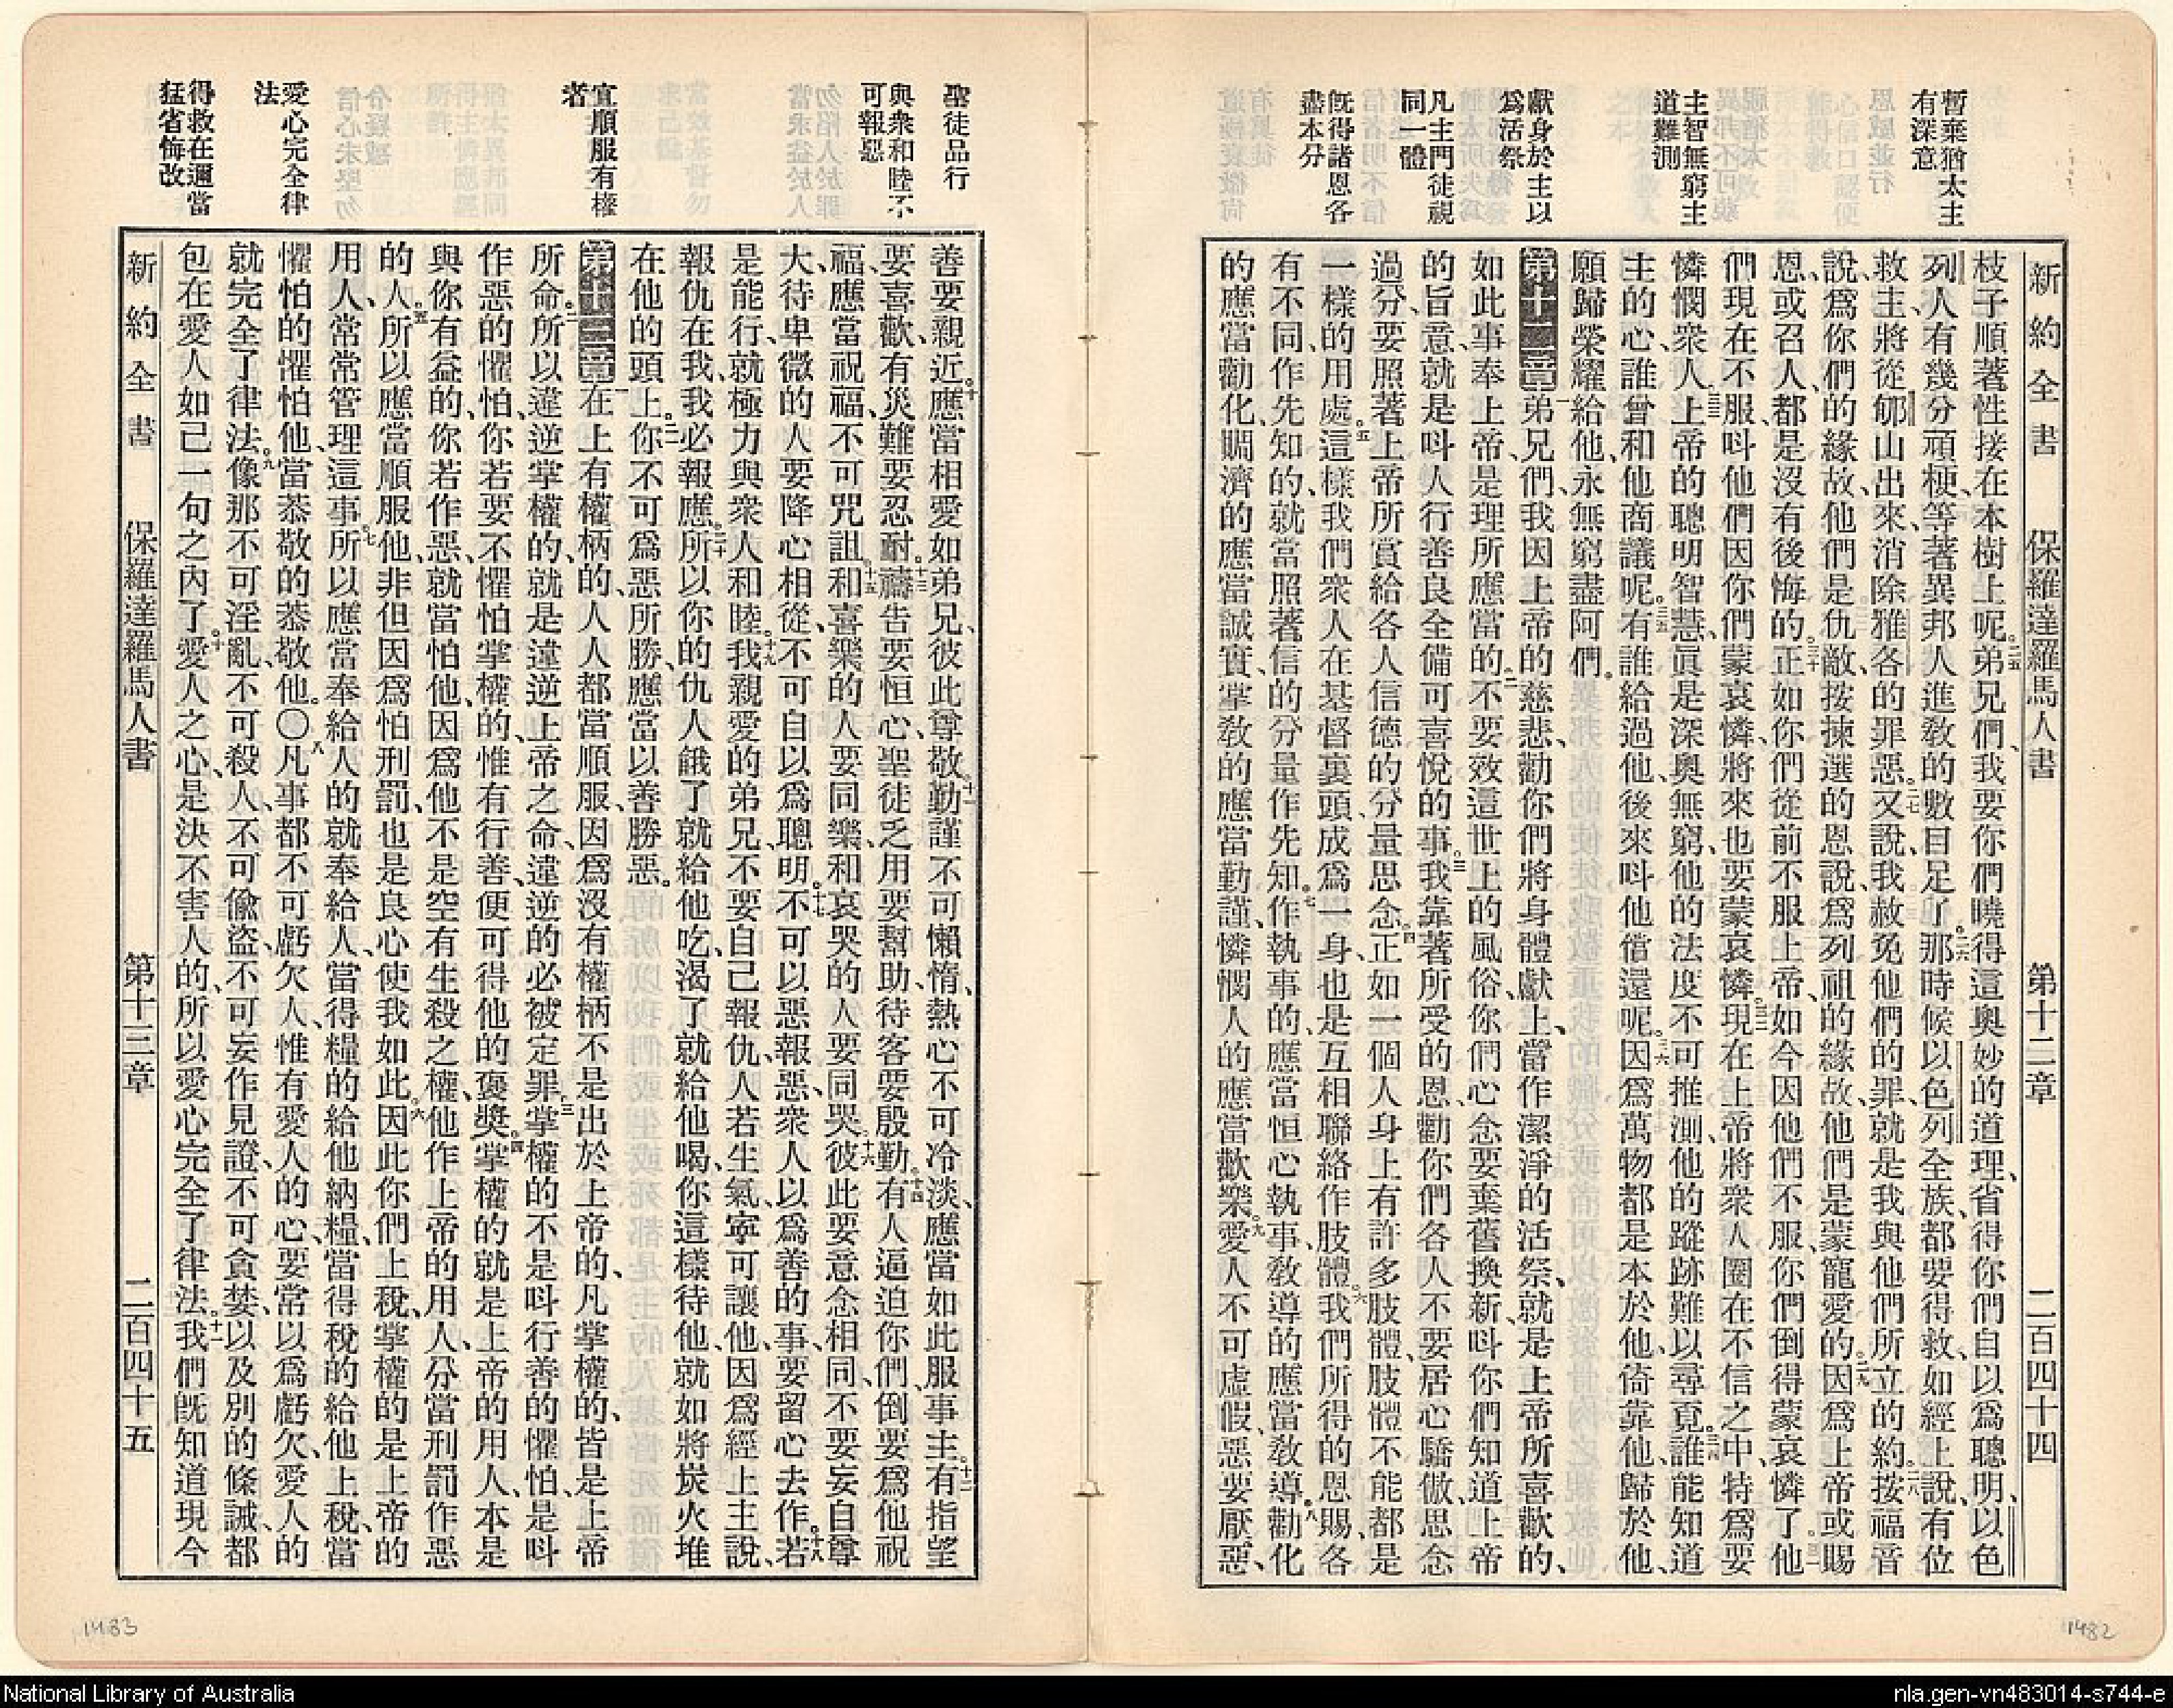 暫棄猶太主
有深意
主智無窮主
道難測
獻身於主以
爲活祭
凡主門徒視
同一體
旣得諸恩各
盡本分
新約全書 保羅達羅馬人書 第十二章 二百四十四
枝子順著性接在本樹上呢。二五弟兄們、我要你們曉得這奧妙的道理、省得你們自以爲聰明、以色
列人有幾分頑梗、等著異邦人進敎的數目足了。二六那時候以色列全族、都要得救、如經上說、有位
救主將從郇山出來、消除雅各的罪惡。二七又說、我赦免他們的罪、就是我與他們所立的約。二八按福音
說、爲你們的緣故、他們是仇敵、按揀選的恩說、爲列祖的緣故、他們是蒙寵愛的。二九因爲上帝或賜
恩、或召人、都是沒有後悔的。三十正如你們從前不服上帝、如今因他們不服、你們倒得蒙哀憐了。三一他
們現在不服、呌他們因你們蒙哀憐、將來也要蒙哀憐。三二現在上帝將衆人圈在不信之中、特爲要
憐憫衆人。三三上帝的聰明智慧、眞是深奧無窮、他的法度不可推測、他的蹤跡難以尋覓。三四誰能知道
主的心、誰曾和他商議呢。三五有誰給過他、後來呌他償還呢。三六因爲萬物都是本於他、倚靠他、歸於他、
願歸榮耀給他、永無窮盡阿們。
第十二章 一弟兄們、我因上帝的慈悲、勸你們將身體獻上、當作潔淨的活祭、就是上帝所喜歡的、
如此事奉上帝、是理所應當的。二不要效這世上的風俗、你們心念要棄舊換新、呌你們知道上帝
的旨意、就是呌人行善良全備可喜悅的事。三我靠著所受的恩、勸你們各人不要居心驕傲、思念
過分、要照著上帝所賞給各人信德的分量思念。四正如一個人身上有許多肢體、肢體不能都是
一樣的用處。五這樣我們衆人在基督裏頭成爲一身、也是互相聯絡作肢體。六我們所得的恩賜、各
有不同、作先知的、就當照著信的分量作先知。七作執事的、應當恒心執事、敎導的應當敎導。八勸化
的應當勸化、賙濟的應當誠實、掌敎的應當勤謹、憐憫人的應當歡樂。九愛人不可虛假、惡要厭惡、
聖徒品行
與衆和睦不
可報惡
宜順服有權
者
愛心完全律
法
得救在邇當
猛省悔改
善要親近。十應當相愛如弟兄、彼此尊敬。十一勤謹不可懶惰、熱心不可冷淡、應當如此服事主。十二有指望
要喜歡、有災難要忍耐。十三禱告要恒心、聖徒乏用要幫助、待客要殷勤。十四有人逼迫你們、倒要爲他祝
福、應當祝福、不可咒詛。十五和喜樂的人要同樂、和哀哭的人要同哭。十六彼此要意念相同、不要妄自尊
大、待卑微的人要降心相從、不可自以爲聰明。十七不可以惡報惡、衆人以爲善的事、要留心去作。十八若
是能行、就極力與衆人和睦。十九我親愛的弟兄、不要自己報仇、人若生氣、寧可讓他、因爲經上主說、
報仇在我、我必報應。二十所以你的仇人餓了、就給他吃、渴了、就給他喝、你這樣待他、就如將炭火堆
在他的頭上。二一你不可爲惡所勝、應當以善勝惡。
第十三章 一在上有權柄的、人人都當順服、因爲沒有權柄不是出於上帝的、凡掌權的、皆是上帝
所命。二所以違逆掌權的、就是違逆上帝之命、違逆的必被定罪。三掌權的不是呌行善的懼怕、是呌
作惡的懼怕、你若要不懼怕掌權的、惟有行善、便可得他的褒獎。四掌權的就是上帝的用人、本是
與你有益的、你若作惡、就當怕他、因爲他不是空有生殺之權、他作上帝的用人、分當刑罰作惡
的人。五所以應當順服他、非但因爲怕刑罰、也是良心使我如此。六因此你們上稅、掌權的是上帝的
用人、常常管理這事。七所以應當奉給人的就奉給人、當得糧的給他納糧、當得稅的給他上稅、當
懼怕的懼怕他、當恭敬的恭敬他。〇八凡事都不可虧欠人、惟有愛人的心、要常以爲虧欠、愛人的
就完全了律法。九像那不可淫亂、不可殺人、不可偸盜、不可妄作見證、不可貪婪、以及別的條誡、都
包在愛人如己一句之內了。十愛人之心、是決不害人的、所以愛心完全了律法。十一我們旣知道現今
新約全書 保羅達羅馬人書 第十三章 二百四十五
1483
1482
National Library of Australia
nla.gen-vn483014-s744-e